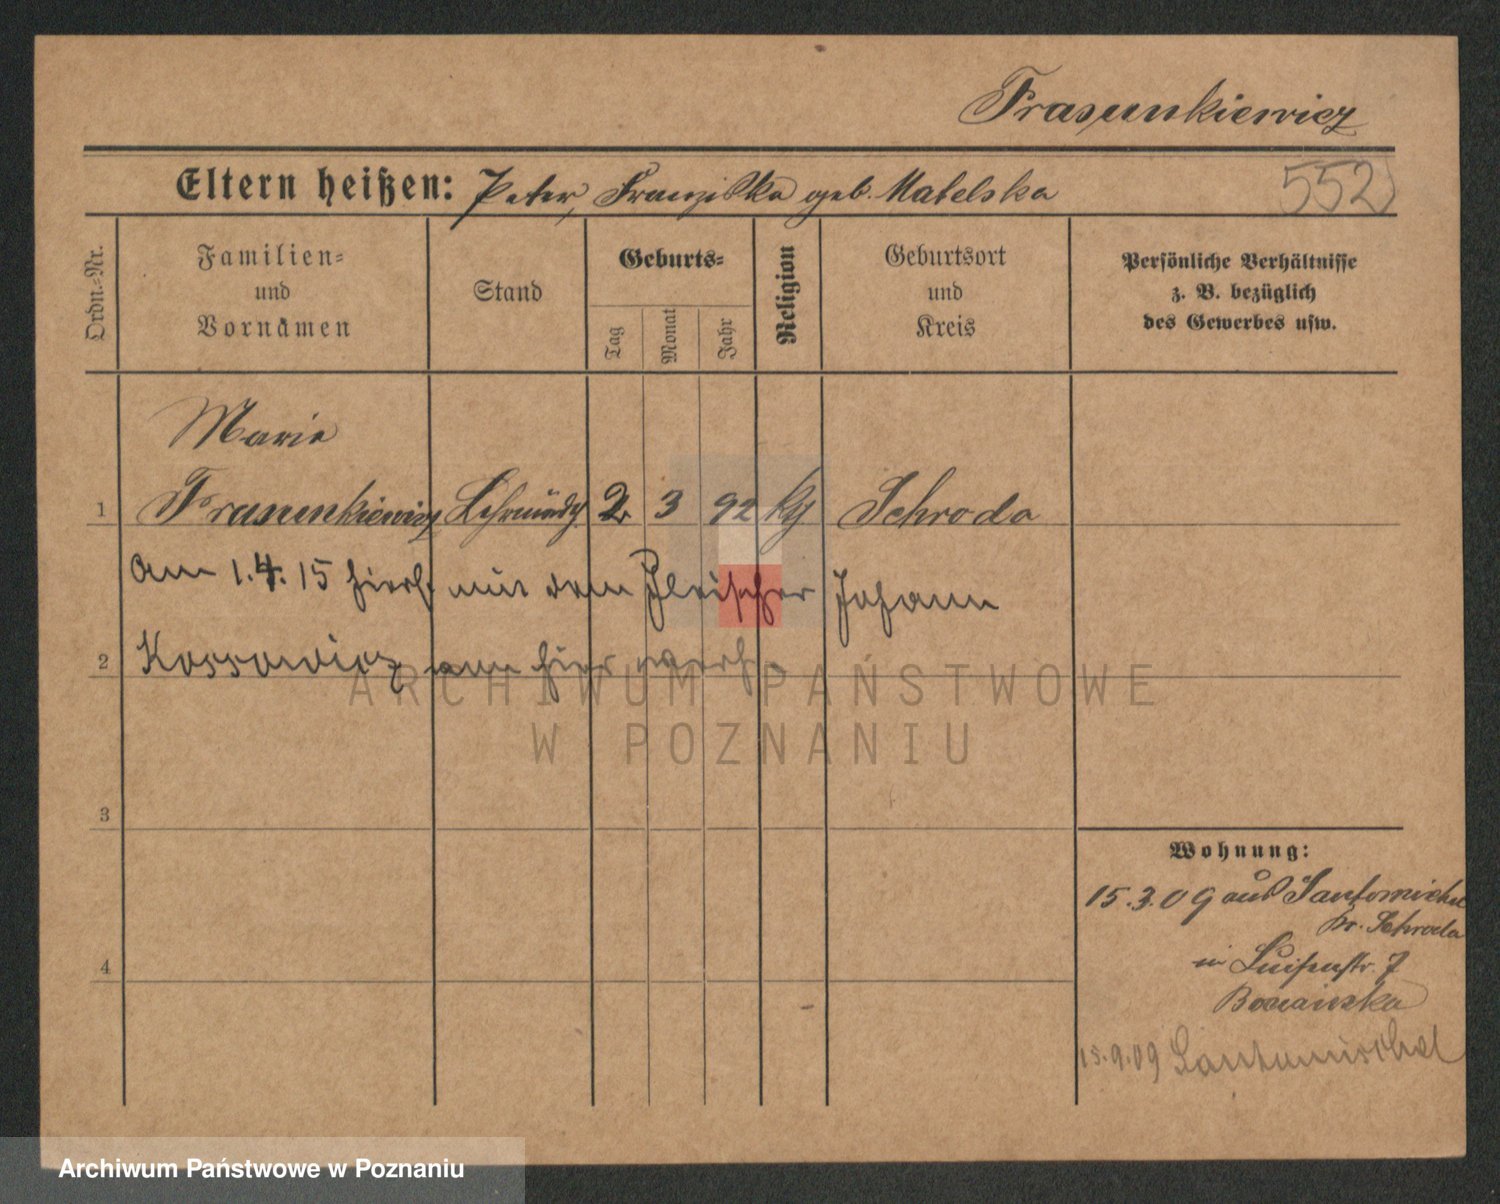 Frasunkiewicz
Eltern heißen: Peter, Franziska geb. Matelska
552
Ordn.-Nr.
Familien-
und
Vornamen
Stand
Geburts-
Tag
Monat
Jahr
Religion
Geburtsort
und
Kreis
Persönliche Verhältnisse
z. B. bezüglich
des Gewerbes usw.
Marie
1 Frasunkiewicz Lehrmädch. 2 3 92 kg Schroda
Am 1.4.15 hierh. mit dem Fleischer Johann
2 Kossowicz von hier verh.
3
4
Wohnung:
15.3.09 aus Santomischel
Kr. Schroda
in Luisenstr. 7
15.9.09 Santomischel
ARCHIWUM PAŃSTWOWE
W POZNANIU
Archiwum Państwowe w Poznaniu